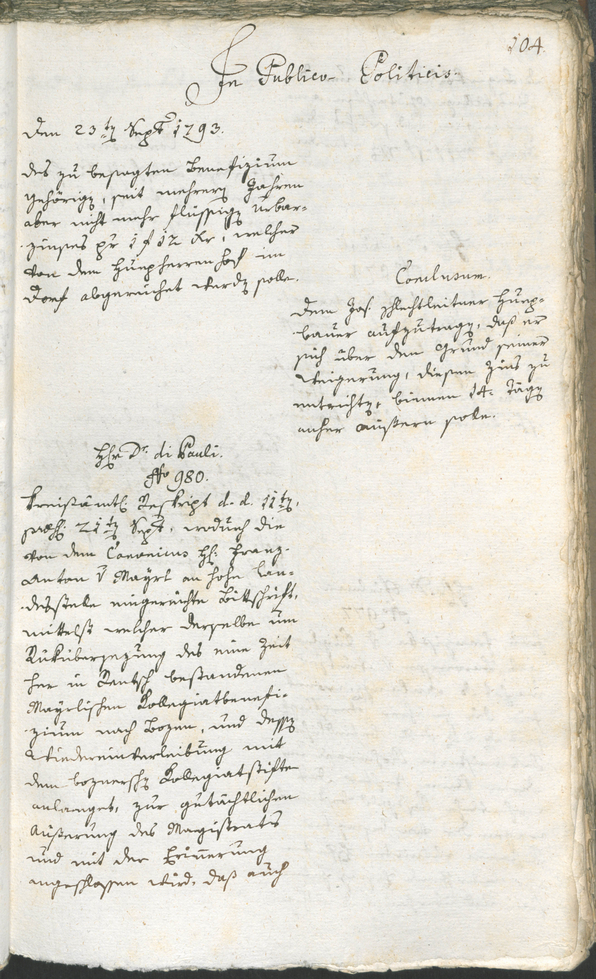 104.
In Publico-Politicis.
Den 23ten Septr 1793.
des zu besagten Benefizium
gehörigen, seit mehrern Jahren
aber nicht mehr flüssigen Urbar-
zinses pr 1 f 12 Kr, welcher
von dem Huepherrenhof im
Dorf abgereichet werden solle.
Conclusum.
Dem Jos. Schlechtleitner Huep-
bauer aufzutragen, daß er
sich über den Grund seiner
Weigerung, diesen Zins zu
entrichten, binnen 14. Tägen
anher äußern solle.
Hr Dr. di Pauli.
No 980.
Kreisämtl. Reskript d. d. 11ten,
21ten Sept, wodurch die
von dem Canonicus H. Franz
Anton v Mayrl an hohe Lan-
desstelle eingereichte Bittschrift,
mittelst welcher derselbe um
Rükübersezung des eine Zeit
her in Rentsch bestandenen
Mayrlischen Kollegiatbenefi-
zium nach Bozen, und dessen
Wiedereinverleibung mit
dem boznerschen Kollegiatstifte
anlanget, zur gutächtlichen
Äußerung des Magistrats
und mit der Erinnerung
angeschlossen wird, daß auch